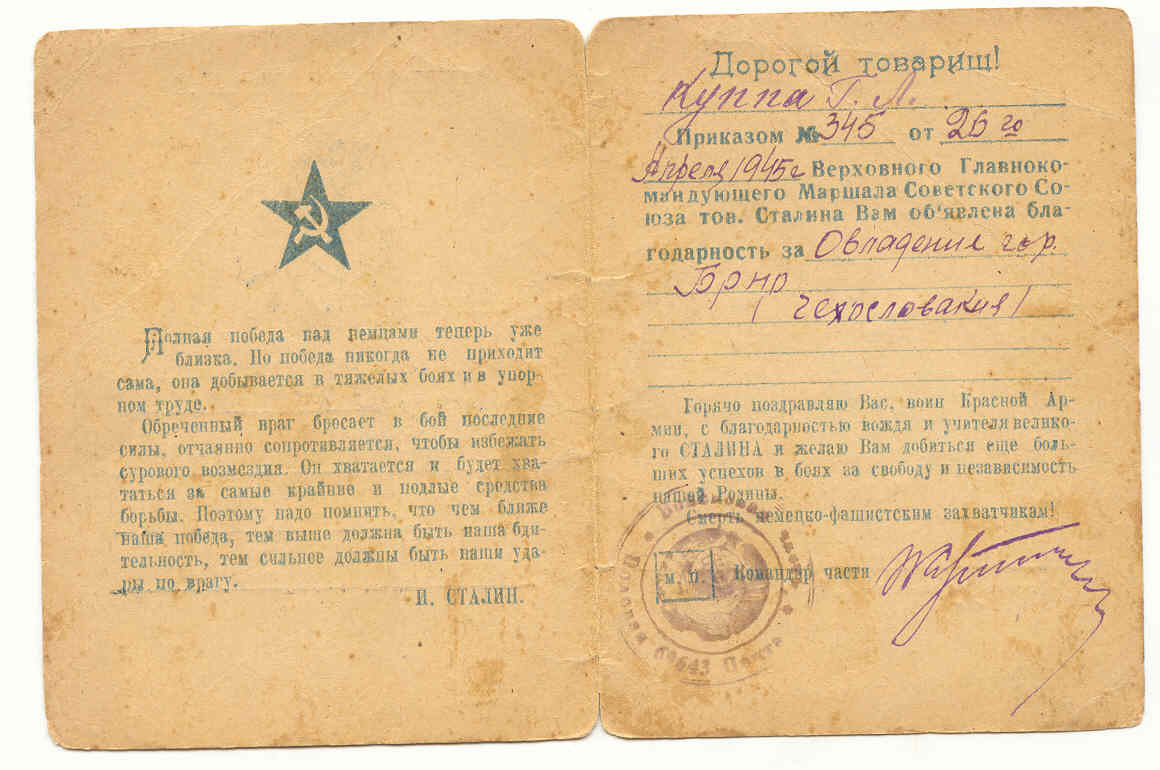 Полная победа над немцами теперь уже
близка. Но победа никогда не приходит
сама, она добывается в тяжелых боях и в упор-
ном труде.
Обреченный враг бросает в бой последние
силы, отчаянно сопротивляется, чтобы избежать
сурового возмездия. Он хватается и будет хва-
таться за самые крайние и подлые средства
борьбы. Поэтому надо помнить, что чем ближе
наша победа, тем выше должна быть наша бди-
тельность, тем сильнее должны быть наши уда-
ры по врагу.
И. СТАЛИН.
Дорогой товарищ!
Куппа Г. Л.
Приказом № 345 от 26 го
Апреля 1945 г Верховного Главноко-
мандующего Маршала Советского Со-
юза тов. Сталина Вам об'явлена бла-
годарность за Овладение гор.
Брно
/Чехословакия/
Горячо поздравляю Вас, воин Красной Ар-
мии, с благодарностью вождя и учителя велико-
го СТАЛИНА и желаю Вам добиться еще боль-
ших успехов в боях за свободу и независимость
нашей Родины.
Смерть немецко-фашистским захватчикам!
М. П. Командир части
Полевая Почта